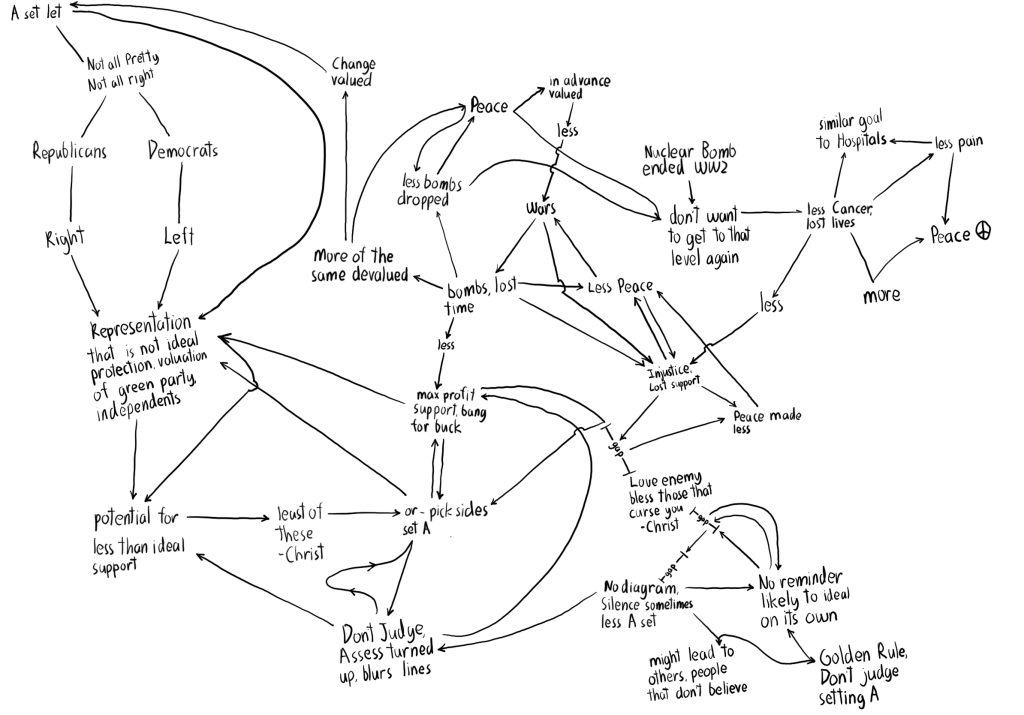 A set let
Not all Pretty
Not all right
Republicans
Democrats
Right
Left
Representation
that is not ideal
protection, valuation
of green party,
independents
Change
valued
Peace
in advance
valued
less
less bombs
dropped
Wars
More of the
same devalued
bombs, lost
time
Less Peace
less
max profit
support, bang
for buck
Nuclear Bomb
ended WW2
don't want
to get to that
level again
similar goal
to Hospitals
less pain
less Cancer,
lost lives
Peace ☮
more
less
Injustice,
Lost support
Peace made
less
gap
Love enemy
bless those that
curse you
-Christ
gap
gap
potential for
less than ideal
support
least of
these
-Christ
or - pick sides
set A
Dont Judge,
Assess turned
up, blurs lines
No diagram,
Silence sometimes
less A set
No reminder
likely to ideal
on its own
might lead to
others, people
that don't believe
Golden Rule,
Don't judge
setting A